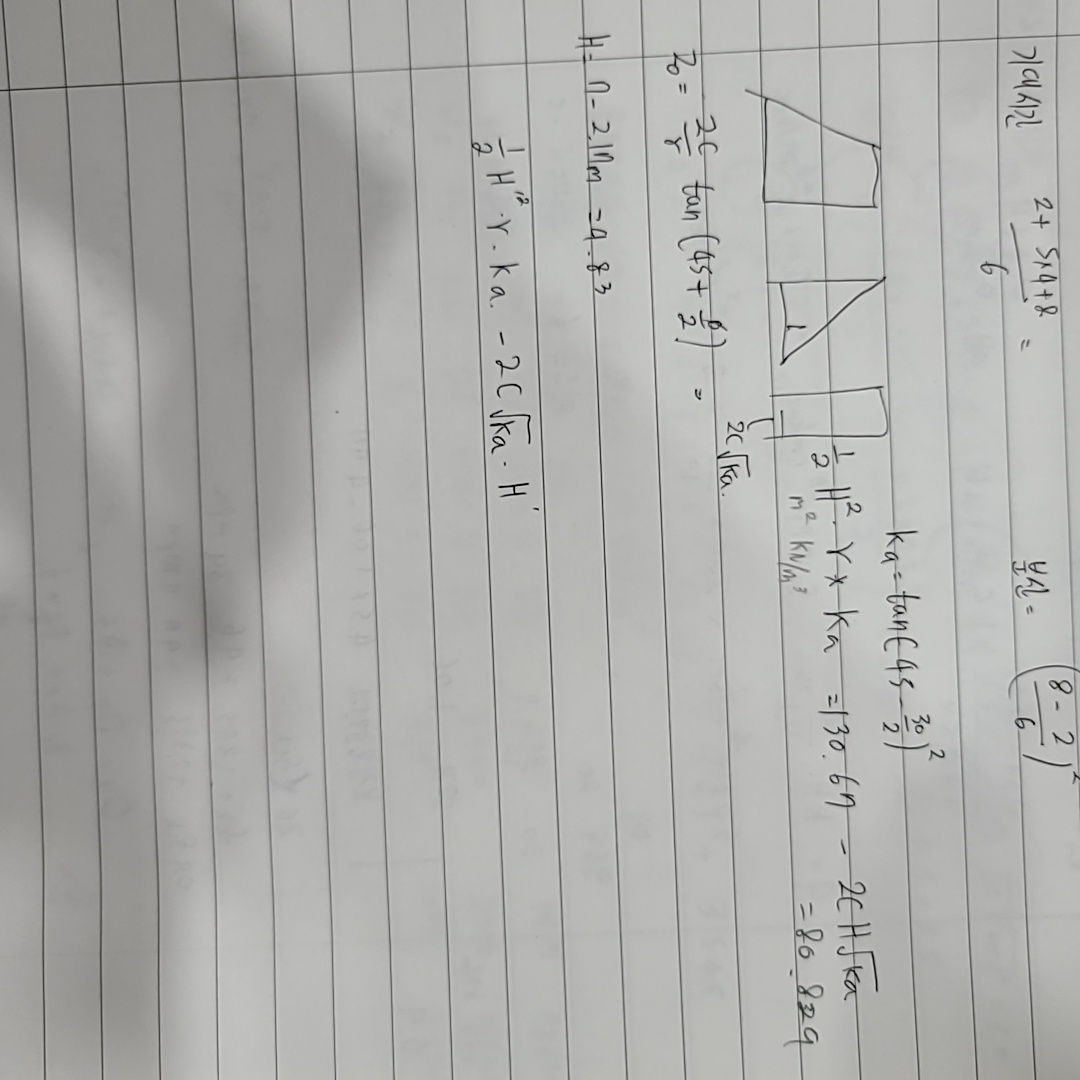 기대시간 2+5x4+8 / 6 = 분산 = (8-2 / 6)²
ka = tan(45 - 30/2)²
1/2 H² · γ x ka = 130.67 - 2CH√ka
m² kN/m³ = 80.829
2C√ka.
Z₀ = 2C/γ tan(45 + ø/2) =
H = 7 - 2.17m = 4.83
1/2 H'² · γ · ka. - 2C√ka · H'